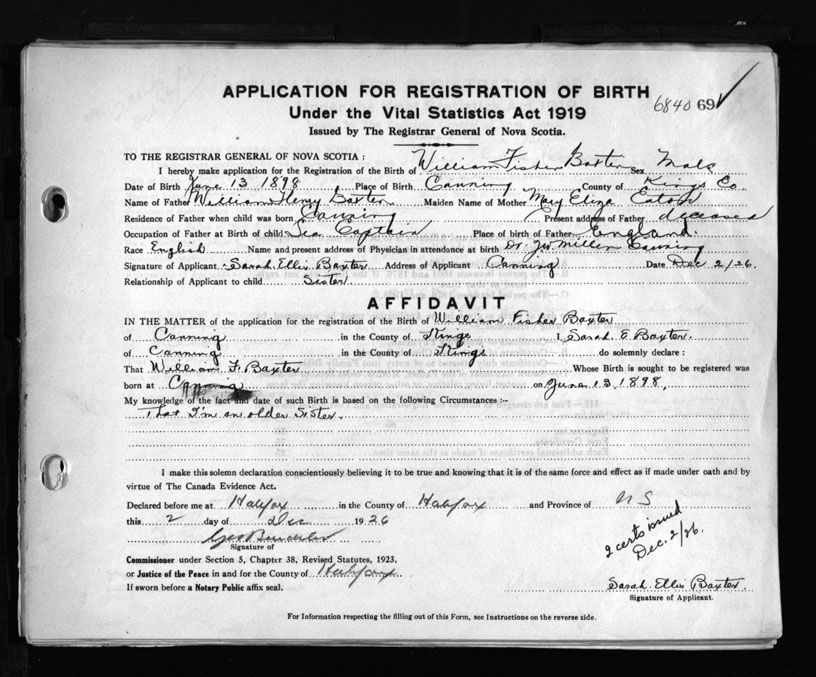 APPLICATION FOR REGISTRATION OF BIRTH
6840 691
Under the Vital Statistics Act 1919
Issued by The Registrar General of Nova Scotia.
TO THE REGISTRAR GENERAL OF NOVA SCOTIA :
I hereby make application for the Registration of the Birth of William Fisher Baxter Sex Male
Date of Birth June 13 1898 Place of Birth Canning County of Kings Co
Name of Father William Henry Baxter Maiden Name of Mother Mary Eliza Eaton
Residence of Father when child was born Canning Present address of Father deceased
Occupation of Father at Birth of child Sea Captain Place of birth of Father England
Race English Name and present address of Physician in attendance at birth Dr. J.W. Miller Canning
Signature of Applicant Sarah Ellis Baxter Address of Applicant Canning Date Dec 2/26.
Relationship of Applicant to child Sister
AFFIDAVIT
IN THE MATTER of the application for the registration of the Birth of William Fisher Baxter
of Canning in the County of Kings I, Sarah E Baxter.
of Canning in the County of Kings do solemnly declare :
That William F. Baxter Whose Birth is sought to be registered was
born at Canning on June 13, 1898,
My knowledge of the fact and date of such Birth is based on the following Circumstances :-
That I'm an older Sister.
I make this solemn declaration conscientiously believing it to be true and knowing that it is of the same force and effect as if made under oath and by
virtue of The Canada Evidence Act.
Declared before me at Halifax in the County of Halifax and Province of N S
this 2 day of Dec 1926
2 certs issued
Dec. 2/26.
Signature of
Commissioner under Section 5, Chapter 38, Revised Statutes, 1923,
or Justice of the Peace in and for the County of Halifax
If sworn before a Notary Public affix seal.
Sarah Ellis Baxter
Signature of Applicant.
For Information respecting the filling out of this Form, see Instructions on the reverse side.